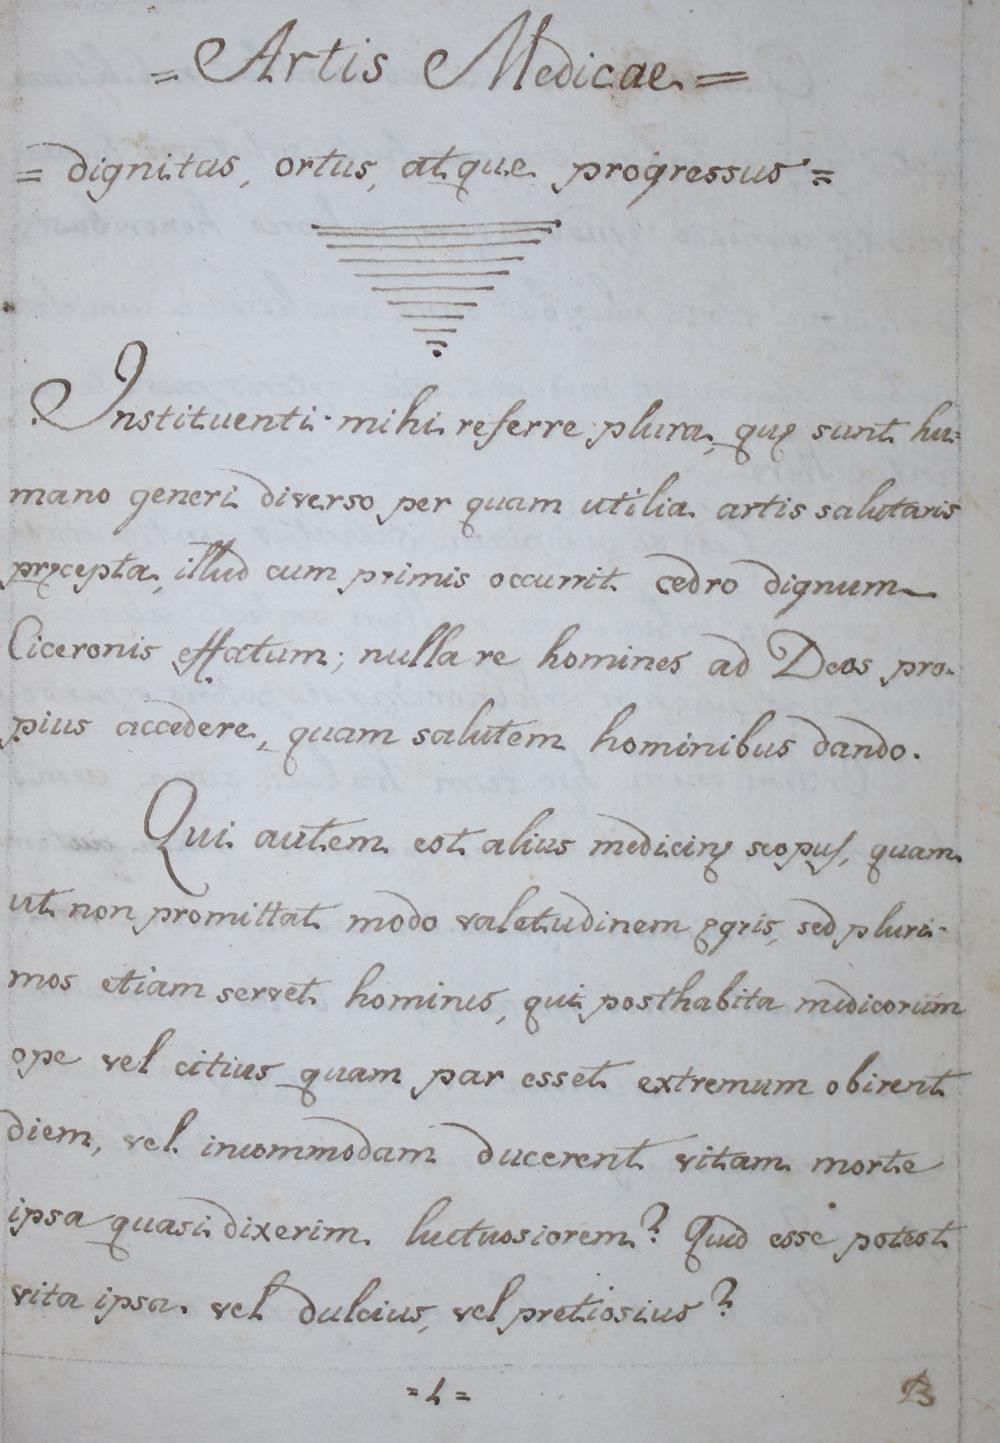 = Artis Medicae =
= dignitas, ortus, atque progressus =
Instituenti mihi referre plura, quę sunt hu=
mano generi diverso per quam utilia artis salutaris
pręcepta, illud cum primis occurrit cedro dignum
Ciceronis effatum; nulla re homines ad Deos pro-
pius accedere, quam salutem hominibus dando.
Qui autem est alius medicinę scopus, quam
ut non promittat modo valetudinem ęgris, sed pluri-
mos etiam servet homines, qui posthabita medicorum
ope vel citius quam par esset extremum obirent
diem, vel incommodam ducerent vitam morte
ipsa quasi dixerim luctuosiorem? Quid esse potest
vita ipsa vel dulcius, vel pretiosius?
B